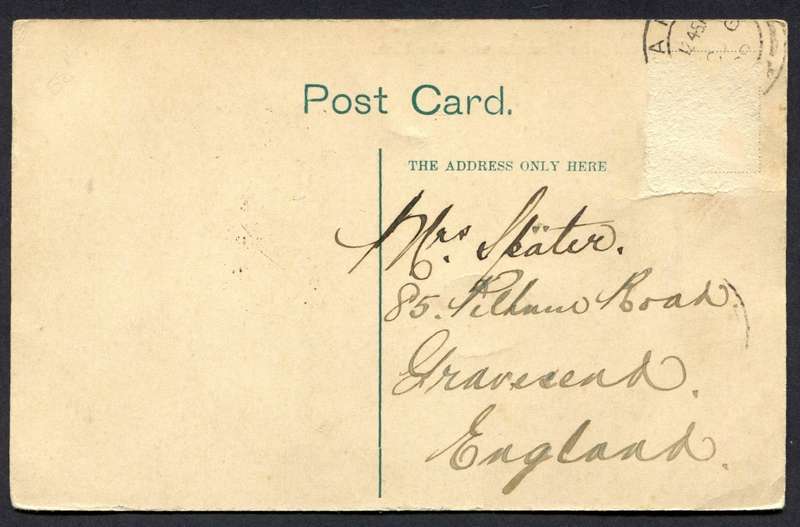 Post Card.
THE ADDRESS ONLY HERE
Mrs. Skäter.
85. Road.
Gravesend.
England.